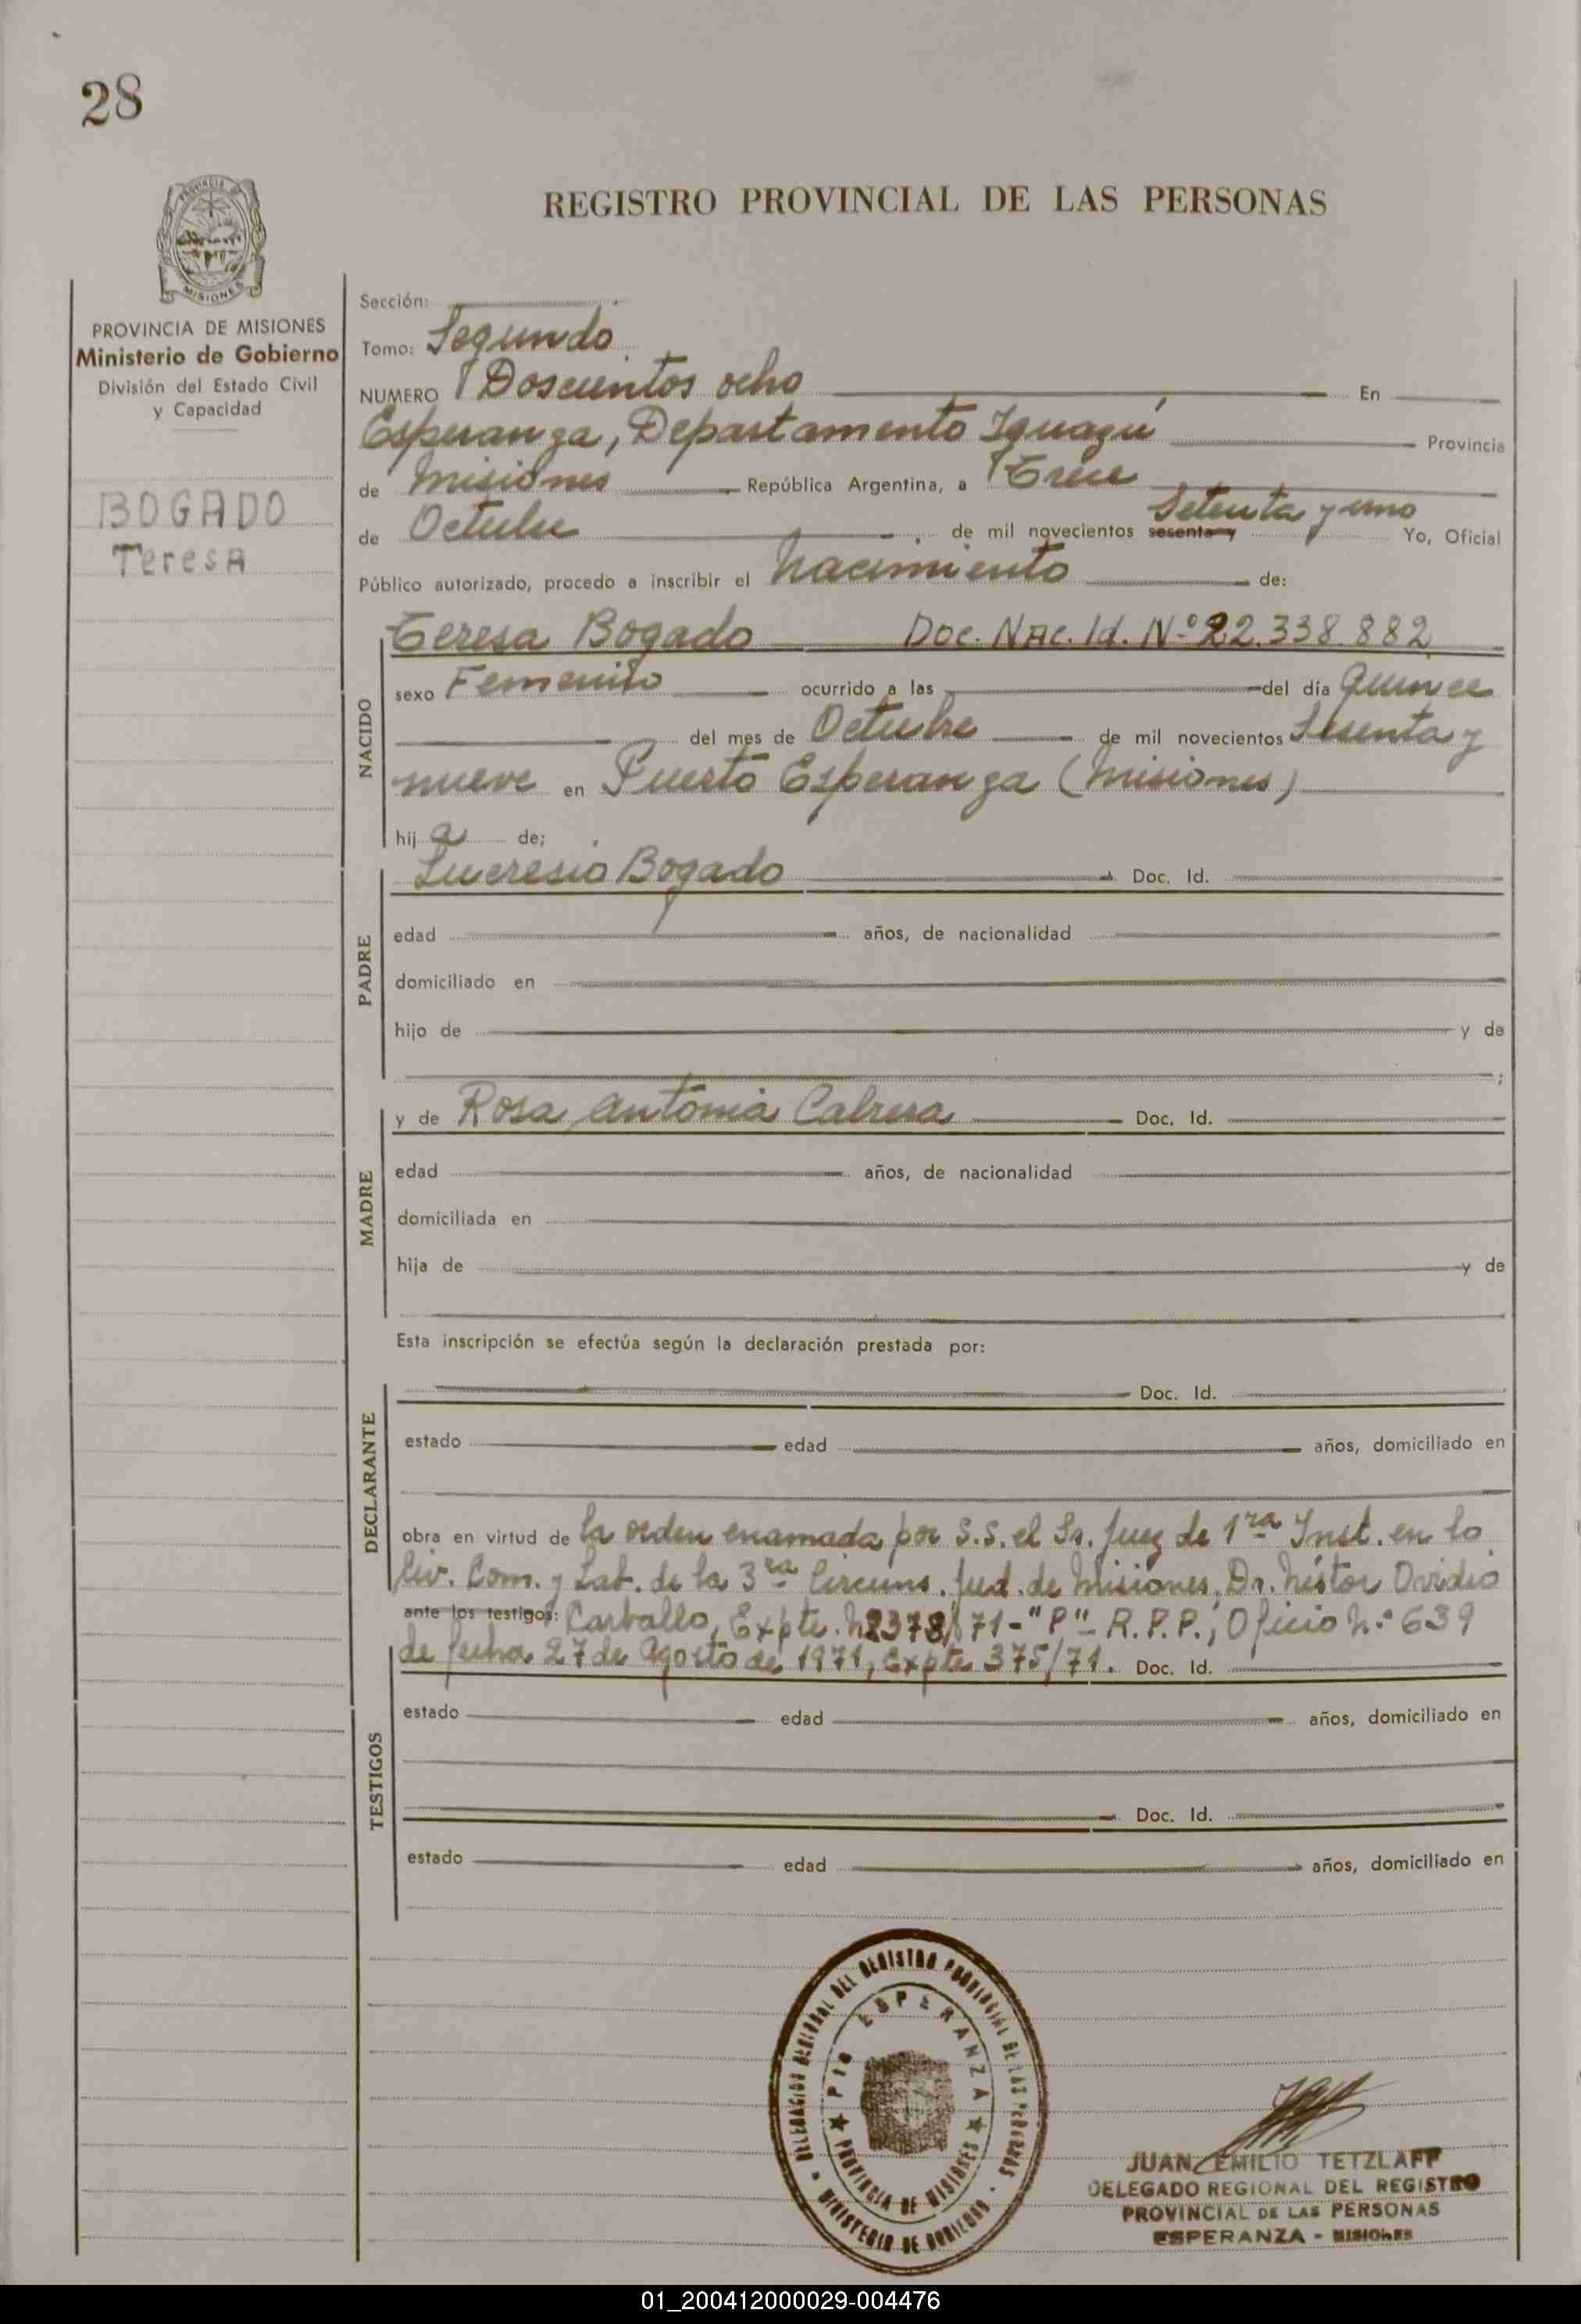 28
PROVINCIA DE MISIONES
REGISTRO PROVINCIAL DE LAS PERSONAS
PROVINCIA DE MISIONES
Ministerio de Gobierno
División del Estado Civil
y Capacidad
BOGADO
Teresa
Sección:
Tomo: Segundo
NUMERO Doscientos ocho En
Esperanza, Departamento Iguazú Provincia
de Misiones República Argentina, a Trece
de Octubre de mil novecientos sesenta y Setenta y uno Yo, Oficial
Público autorizado, procedo a inscribir el Nacimiento de:
NACIDO
Teresa Bogado Doc. Nac. Id. Nº 22.338.882
sexo Femenino ocurrido a las del día Quince
del mes de Octubre de mil novecientos Sesenta y
nueve en Puerto Esperanza (Misiones)
hij a de;
PADRE
Lucresio Bogado Doc. Id.
edad años, de nacionalidad
domiciliado en
hijo de y de
;
MADRE
y de Rosa Antonia Cabrera Doc. Id.
edad años, de nacionalidad
domiciliada en
hija de y de
Esta inscripción se efectúa según la declaración prestada por:
DECLARANTE
Doc. Id.
estado edad años, domiciliado en
obra en virtud de la orden enamada por S.S. el Sr. Juez de 1ra Inst. en lo
Civ. Com. y Lab. de la 3ra Circuns. Jud. de Misiones, Dr. Néstor Ovidio
ante los testigos: Carballo, Expte. 2378/71-"P"- R.P.P.; Oficio N.º 639
de fecha 27 de Agosto de 1971, Expte 375/71. Doc. Id.
TESTIGOS
estado edad años, domiciliado en
Doc. Id.
estado edad años, domiciliado en
DELEGACION REGIONAL DEL REGISTRO PROVINCIAL DE LAS PERSONAS
PTO ESPERANZA
PROVINCIA DE MISIONES
MINISTERIO DE GOBIERNO
JUAN EMILIO TETZLAFF
DELEGADO REGIONAL DEL REGISTRO
PROVINCIAL DE LAS PERSONAS
ESPERANZA - MISIONES
01_200412000029-004476